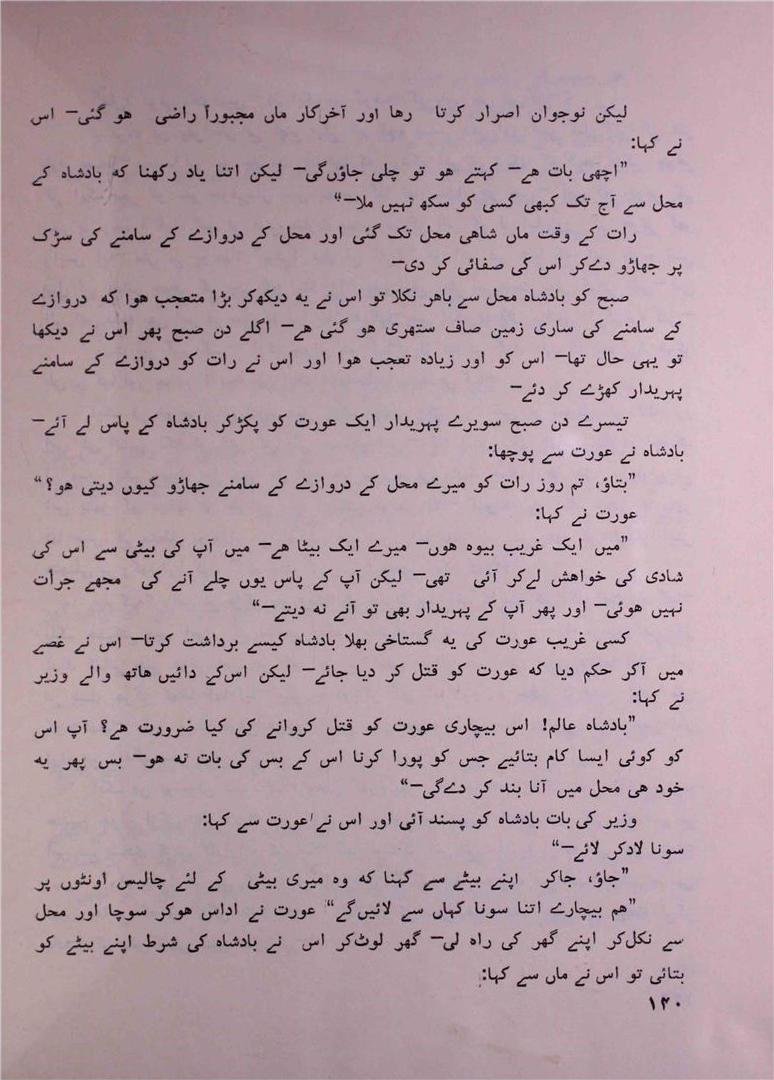 لیکن نوجوان اصرار کرتا رها اور آخرکار ماں مجبوراً راضی هو گئی— اس
نے کہا:
”اچھی بات هے— کہتے هو تو چلی جاؤں‌گی— لیکن اتنا یاد رکھنا که بادشاہ کے
محل سے آج تک کبھی کسی کو سکھ نہیں ملا—“
رات کے وقت ماں شاهی محل تک گئی اور محل کے دروازے کے سامنے کی سڑک
پر جھاڑو دے‌کر اس کی صفائی کر دی—
صبح کو بادشاہ محل سے باهر نکلا تو اس نے یه دیکھ‌کر بڑا متعجب هوا که دروازے
کے سامنے کی ساری زمین صاف ستھری هو گئی هے— اگلے دن صبح پھر اس نے دیکھا
تو یہی حال تھا— اس کو اور زیادہ تعجب هوا اور اس نے رات کو دروازے کے سامنے
پہریدار کھڑے کر دئے—
تیسرے دن صبح سویرے پہریدار ایک عورت کو پکڑکر بادشاہ کے پاس لے آئے—
بادشاہ نے عورت سے پوچھا:
”بتاؤ، تم روز رات کو میرے محل کے دروازے کے سامنے جھاڑو کیوں دیتی هو؟“
عورت نے کہا:
”میں ایک غریب بیوہ هوں— میرے ایک بیٹا هے— میں آپ کی بیٹی سے اس کی
شادی کی خواهش لے‌کر آئی تھی— لیکن آپ کے پاس یوں چلے آنے کی مجھے جرأت
نہیں هوئی— اور پھر آپ کے پہریدار بھی تو آنے نه دیتے—“
کسی غریب عورت کی یه گستاخی بھلا بادشاہ کیسے برداشت کرتا— اس نے غصے
میں آکر حکم دیا که عورت کو قتل کر دیا جائے— لیکن اس‌کے دائیں هاتھ والے وزیر
نے کہا:
”بادشاہ عالم! اس بیچاری عورت کو قتل کروانے کی کیا ضرورت هے؟ آپ اس
کو کوئی ایسا کام بتائیے جس کو پورا کرنا اس کے بس کی بات نه هو— بس پھر یه
خود هی محل میں آنا بند کر دے‌گی—“
وزیر کی بات بادشاہ کو پسند آئی اور اس نے عورت سے کہا:
سونا لادکر لائے—“
”جاؤ، جاکر اپنے بیٹے سے کہنا که وہ میری بیٹی کے لئے چالیس اونٹوں پر
”هم بیچارے اتنا سونا کہاں سے لائیں‌گے“ عورت نے اداس هوکر سوچا اور محل
سے نکل‌کر اپنے گھر کی راہ لی— گھر لوٹ‌کر اس نے بادشاہ کی شرط اپنے بیٹے کو
بتائی تو اس نے ماں سے کہا:
۱۴۰